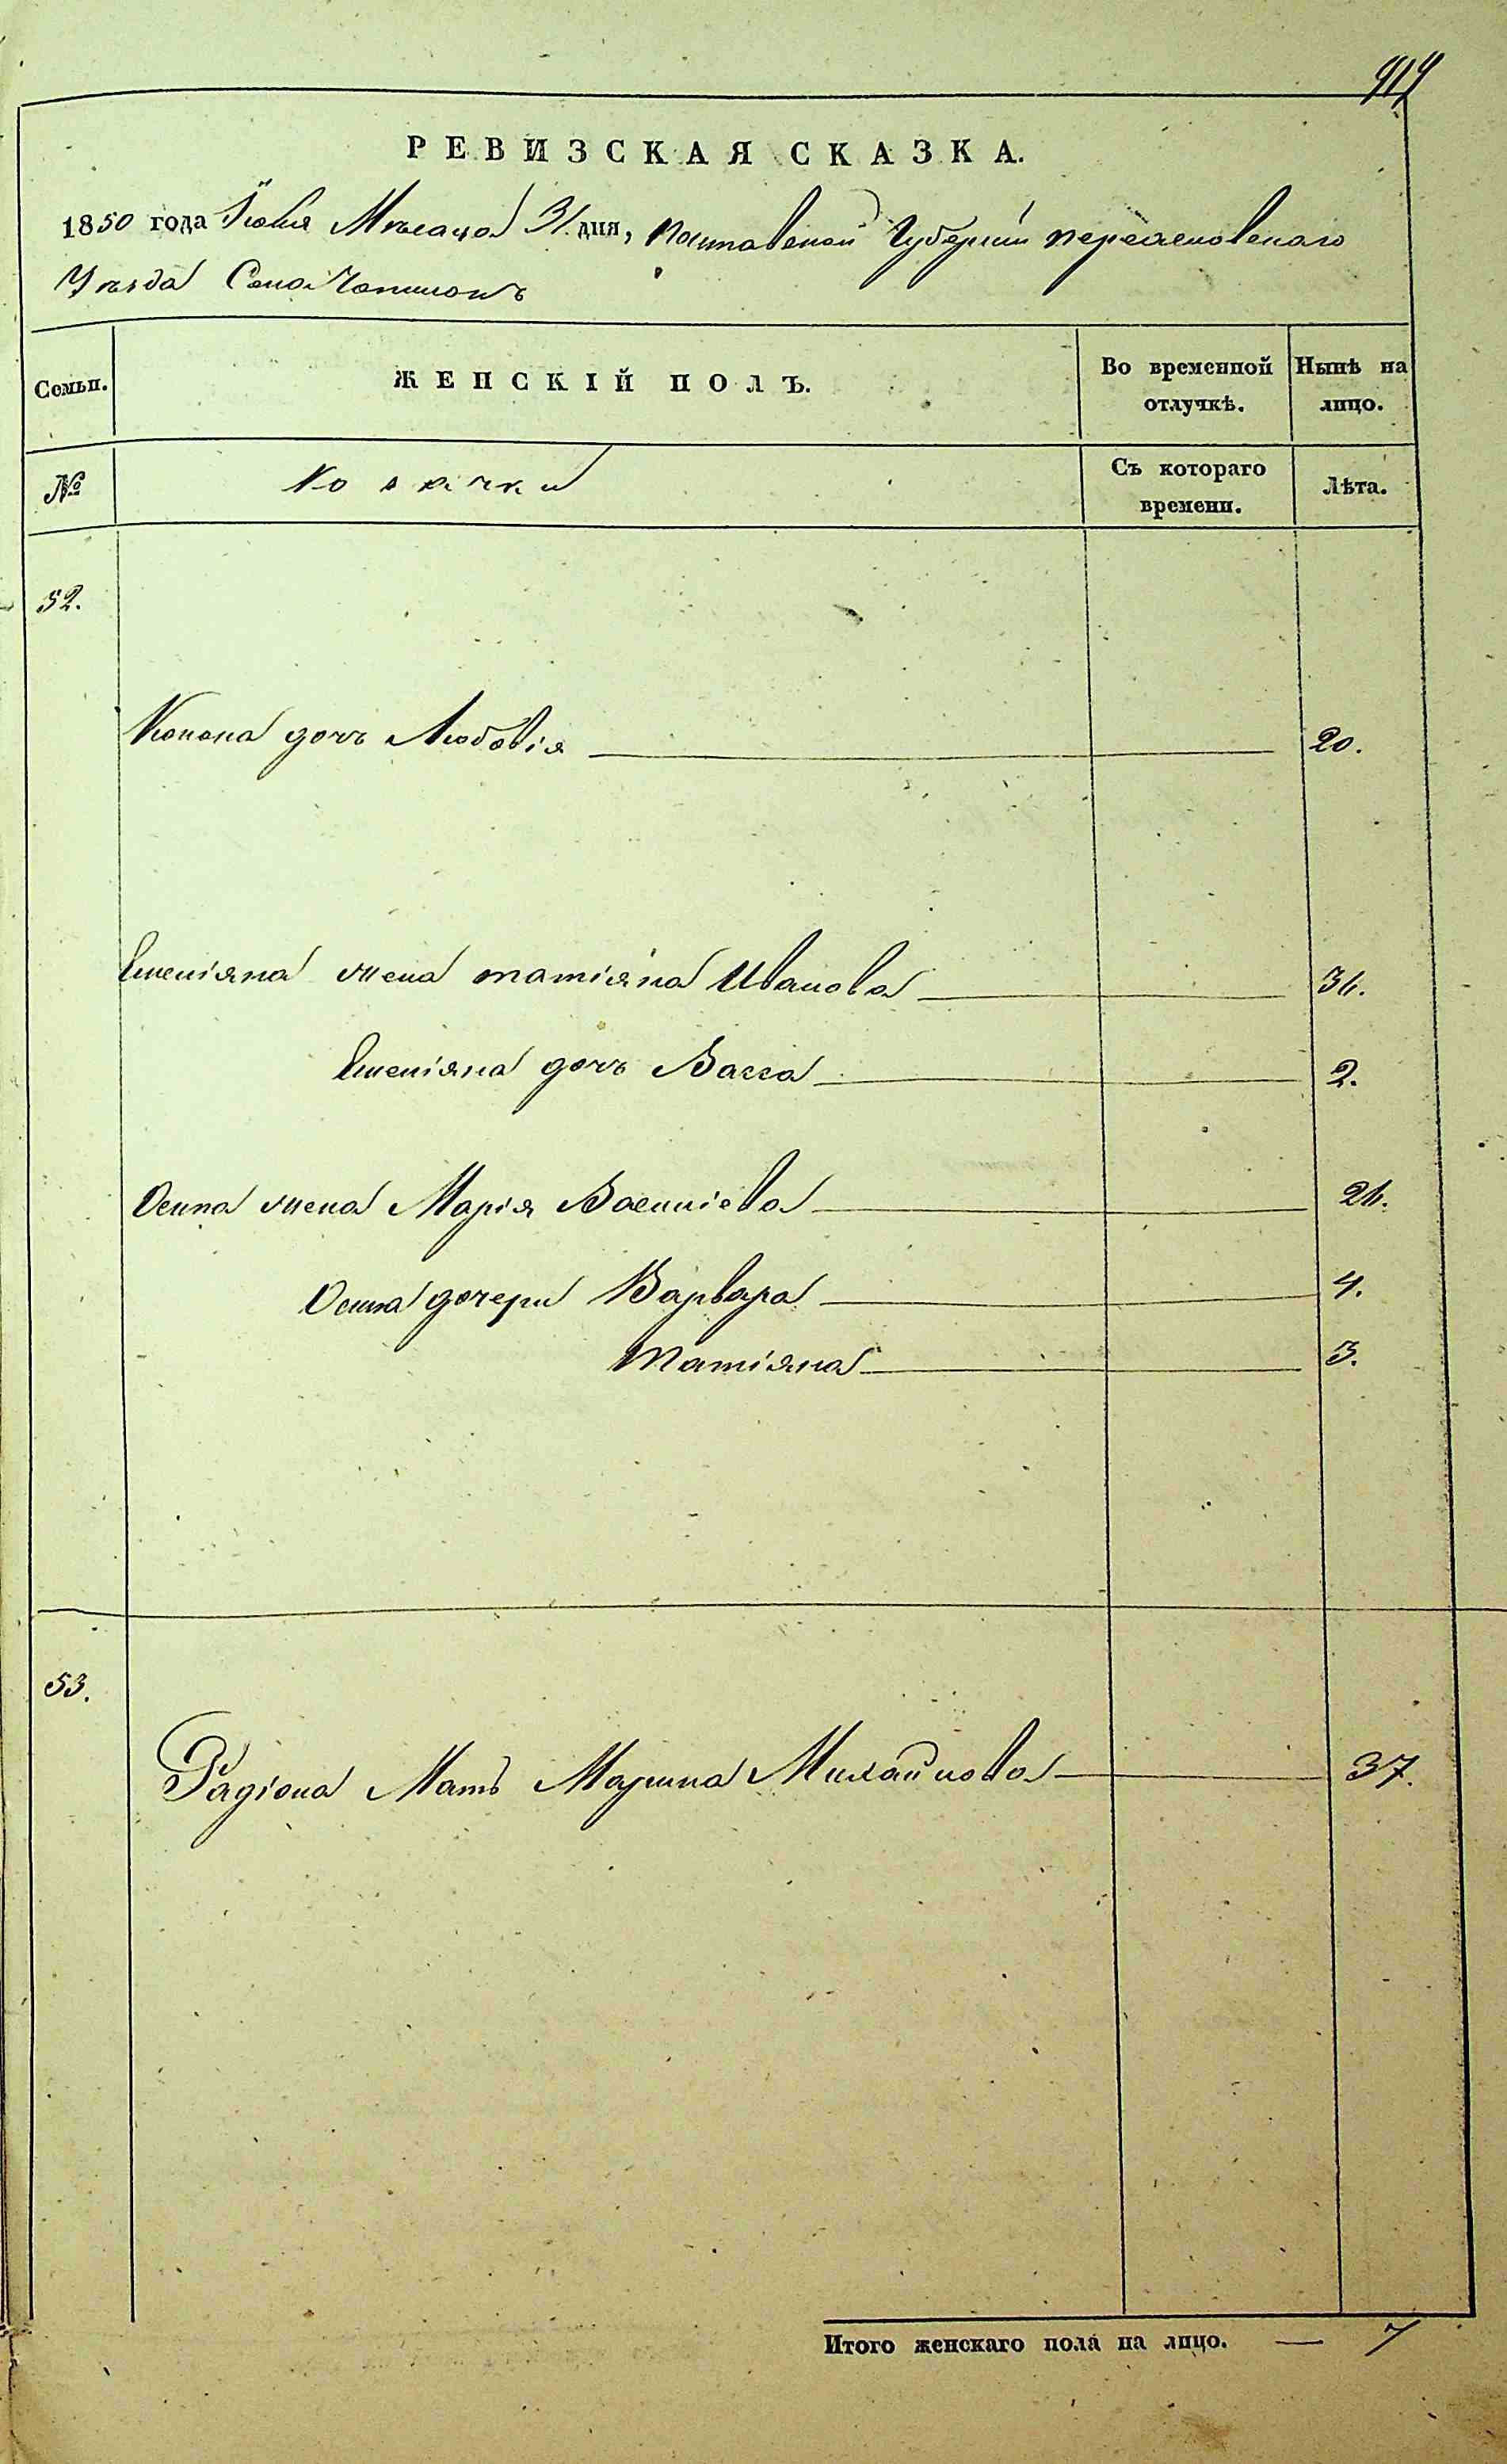 РЕВИЗСКАЯ СКАЗКА.
1850 года Іюля Мѣсяца 31. дня, Полтавской Губерніи Переясловскаго
Уѣзда Села
Семьи. ЖЕНСКІЙ ПОЛЪ. Во временной отлучкѣ. Нынѣ на лицо.
№ Козачки Съ котораго времени. Лѣта.
52.
Конона дочь Любовія 20.
Емеліяна жена Татіяна Иванова
Емеліяна дочь Васса 2.
Осипа жена Марія Василіева
Осипа дочери Варвара 4.
Татіяна 3.
53.
Радіона Мать Марина Михайлова 37.
Итого женскаго пола на лицо. — 7